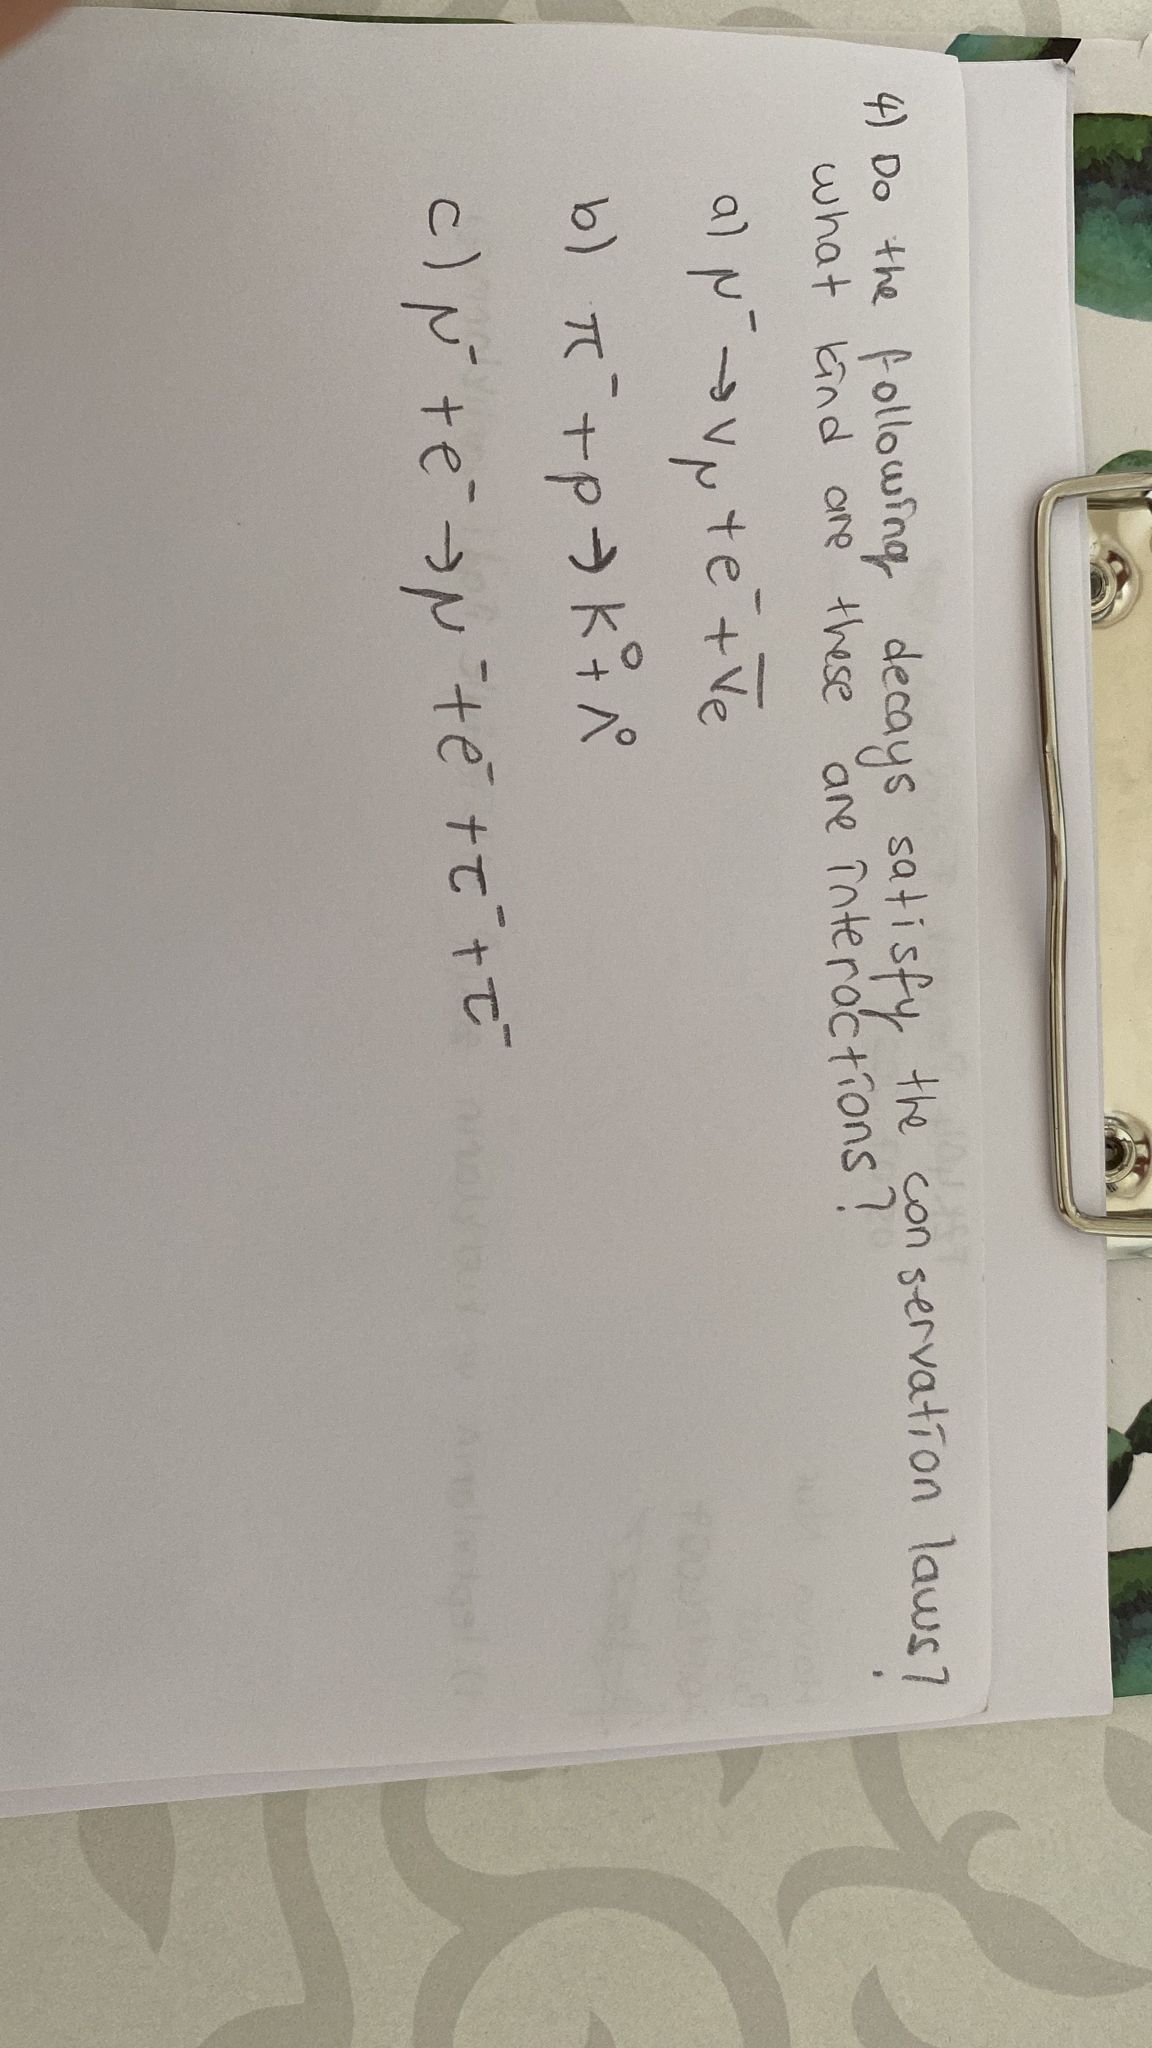 4) Do the following decays satisfy the conservation laws?
what kind are these are interactions?
a) μ⁻ → νμ + e⁻ + ν̅e
b) π⁻ + p → K⁰ + Λ⁰
c) μ⁻ + e⁻ → μ⁻ + e⁻ + τ⁻ + τ⁻